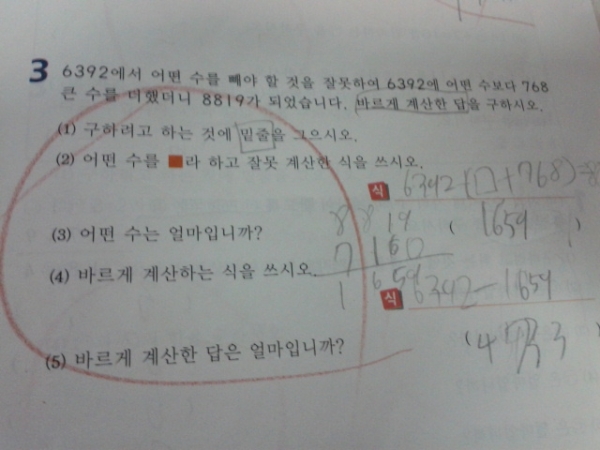 3 6392에서 어떤 수를 빼야 할 것을 잘못하여 6392에 어떤 수보다 768
큰 수를 더했더니 8819가 되었습니다. 바르게 계산한 답을 구하시오.
(1) 구하려고 하는 것에 밑줄을 그으시오.
(2) 어떤 수를 ■라 하고 잘못 계산한 식을 쓰시오.
식 6392+(□+768)=8
8819 (1659)
(3) 어떤 수는 얼마입니까?
7160
(4) 바르게 계산하는 식을 쓰시오.
1659
식 6392-1659
(5) 바르게 계산한 답은 얼마입니까?